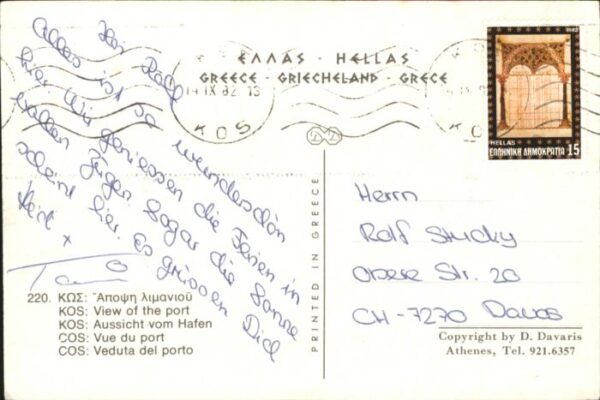 ΕΛΛΑΣ · HELLAS
GREECE · GRIECHELAND · GRECE
IX 82 13
KOS
KOS
1982
HELLAS
ΕΛΛΗΝΙΚΗ ΔΗΜΟΚΡΑΤΙΑ 15
Alles ist so wunderschön
hier. Wir geniessen die Ferien in
vollen Zügen. Sogar die Sonne
scheint hier. Es grüssen Dich
PRINTED IN GREECE
Herrn
Rolf Stucky
Obere Str. 20
CH-7270 Davos
220. ΚΩΣ: Ἄποψη λιμανιοῦ
KOS: View of the port
KOS: Aussicht vom Hafen
COS: Vue du port
COS: Veduta del porto
Copyright by D. Davaris
Athenes, Tel. 921.6357